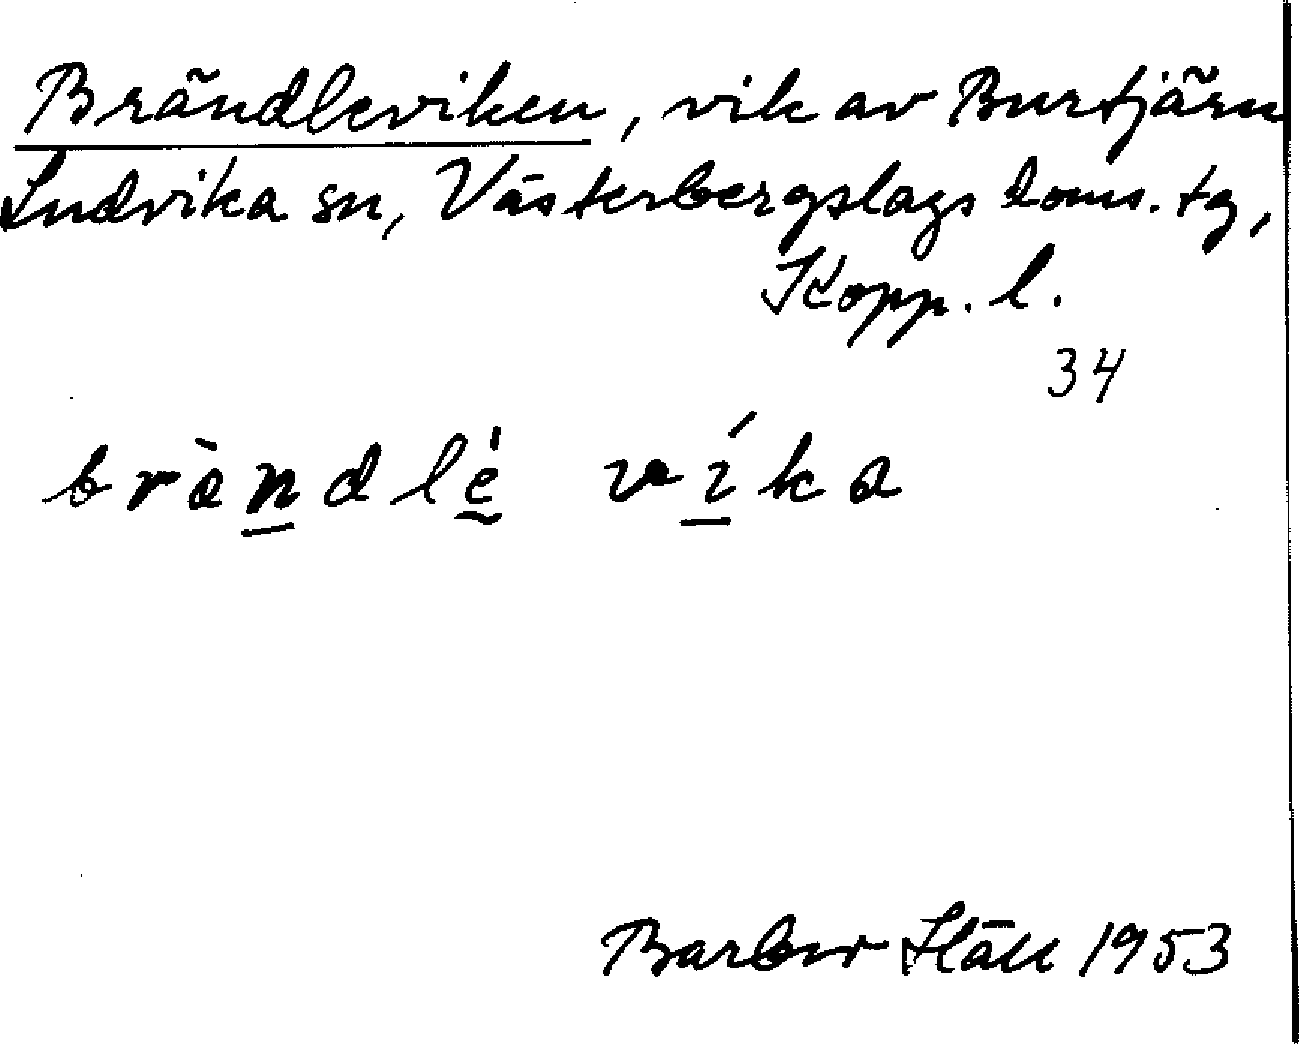 Brändleviken, vik av Burtjärn
Ludvika sn, Västerbergslags doms. tg,
Kopp. l.
34
brὰndlè víka
Barbro Häll 1953